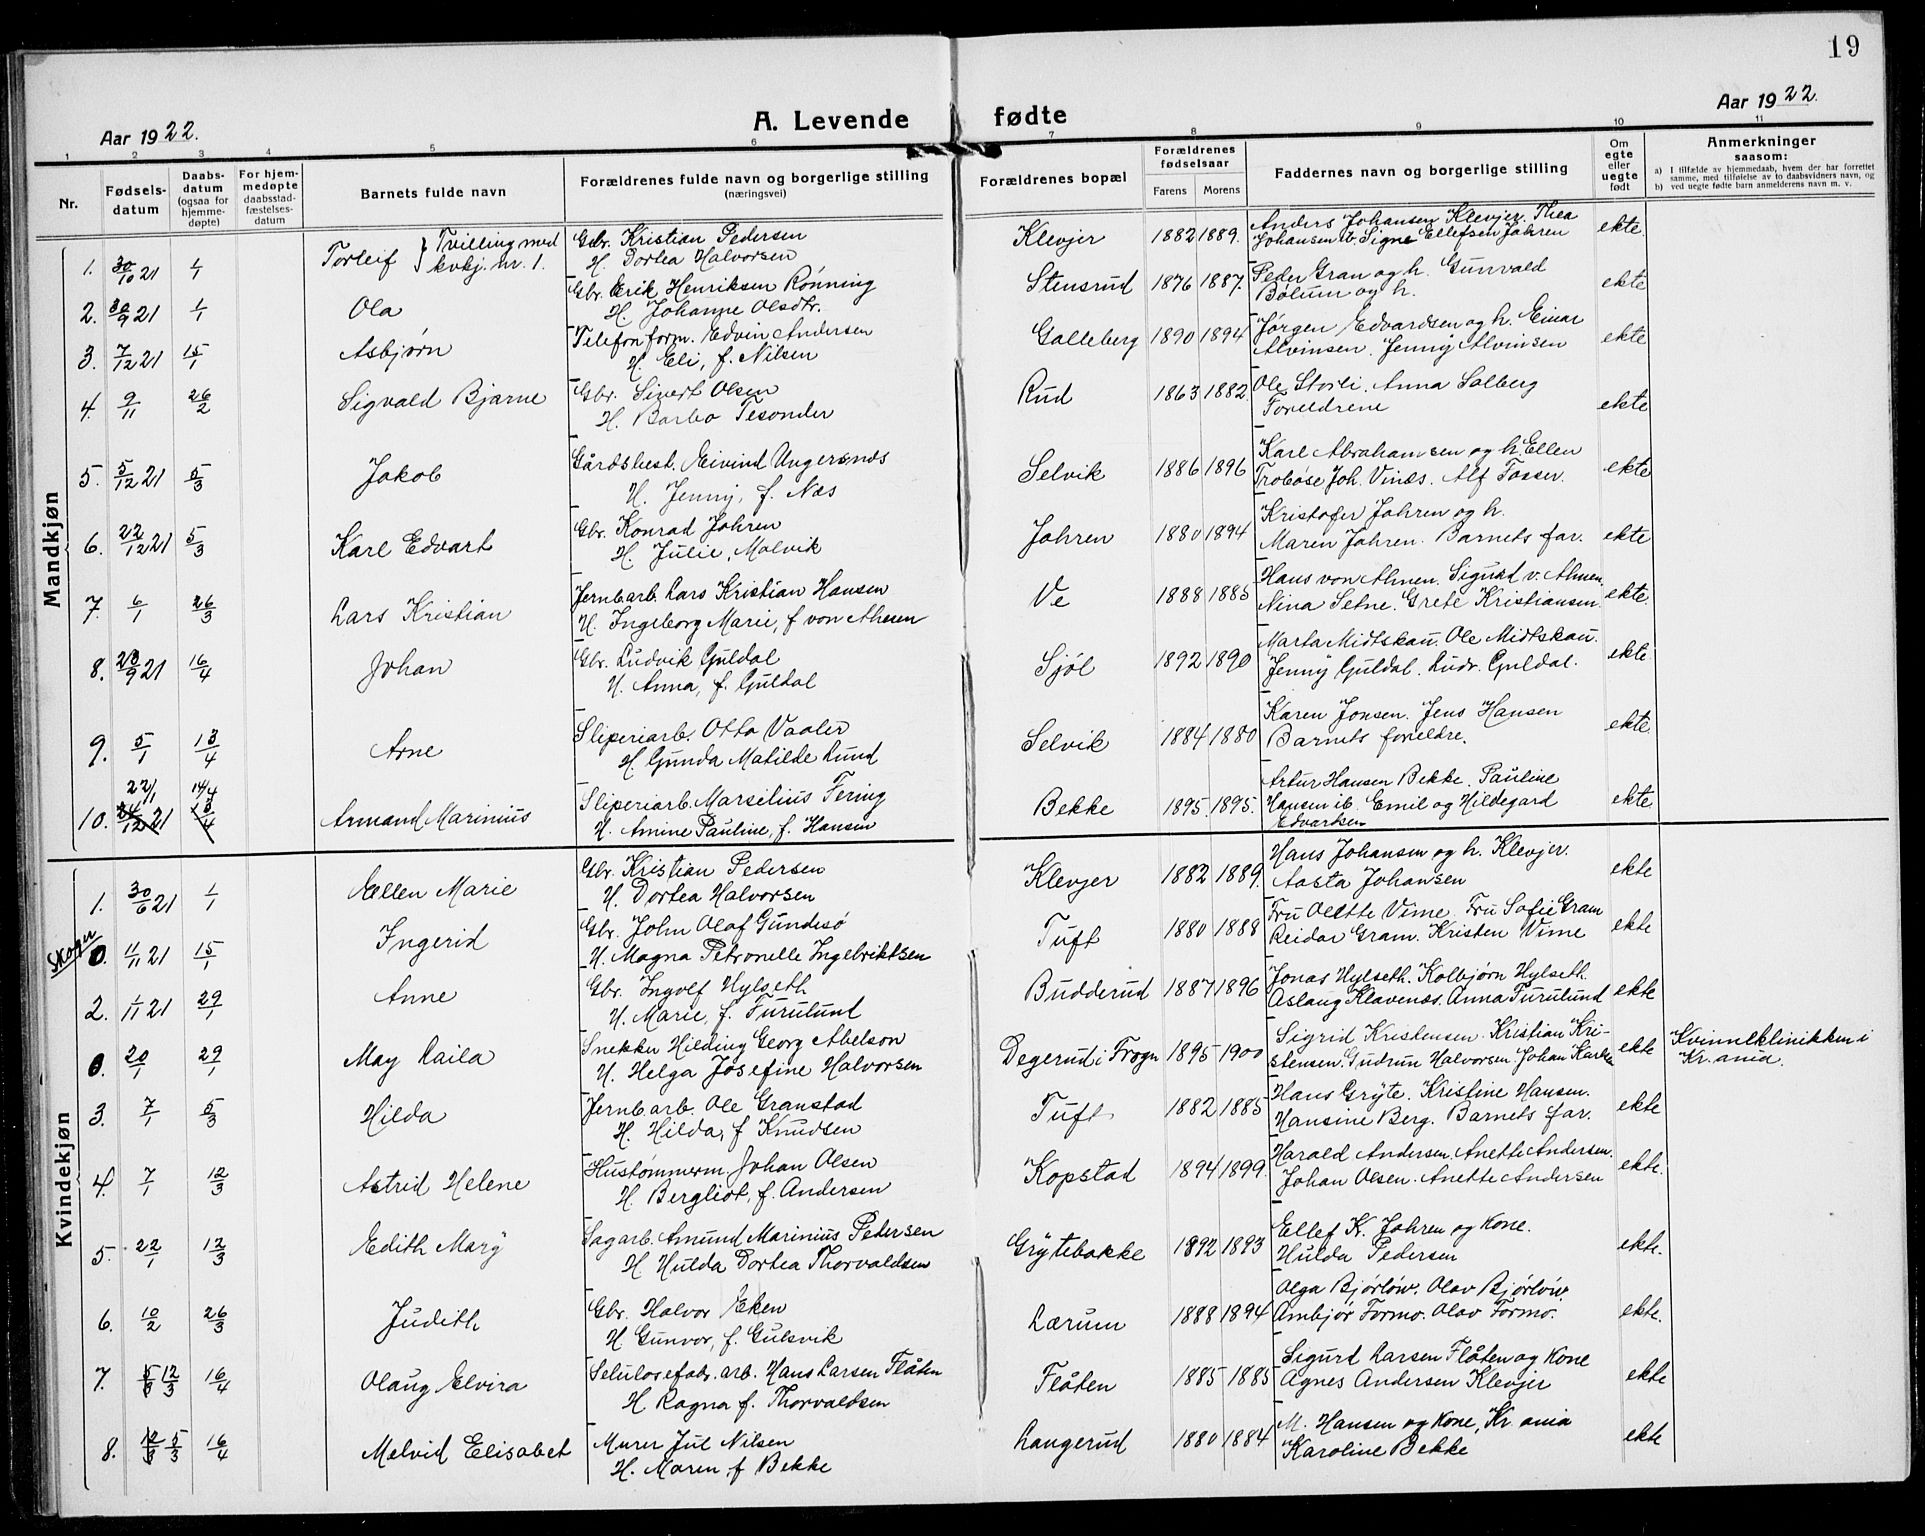 19
Aar 1922. A. Levende fødte Aar 1922.
1 2 3 4 5 6 7 8 9 10 11
Nr.
Fødsels-
datum
Daabs-
datum
(ogsaa for
hjemme-
døpte)
For hjem-
medøpte
daabsstad-
fæstelses-
datum
Barnets fulde navn
Forældrenes fulde navn og borgerlige stilling
(næringsvei)
Forældrenes bopæl
Forældrenes
fødselsaar
Farens Morens
Faddernes navn og borgerlige stilling
Om
egte
eller
uegte
født
Anmerkninger
saasom:
a) I tilfælde av hjemmedaab, hvem der har forrettet
samme, med tilføielse av to daabsvidners navn, og
b) ved uegte fødte barn anmelderens navn m. v.
Mandkjøn
1. 30/10 21 1/1 Torleif } Tvilling med kvkj. nr. 1. Gbr. Kristian Pedersen Klevjer 1882 1889. Anders Johansen Klevjer. Thea ekte.
H. Dortea Halvorsen Johansen ib. Signe Ellefsen Jahren
2. 30/9 21 1/1 Ola Gbr. Erik Henriksen Rønning Stensrud 1876 1887. Peder Gran og h. Gunvald ekte
H. Johanne Olsdtr. Bølum og h.
3. 7/12 21 15/1 Asbjørn Telefonform. Edvin Andersen Galleberg 1890 1894 Jørgen Edvardsen og h. Einar ekte
H. Eli, f. Nilsen Alvinsen. Jenny Alvinsen
4. 9/11 26/2 Sigvald Bjarne Gbr. Sivert Olsen Rud 1863 1882. Ole Storli. Anna Solberg ekte
H. Barbo Tesonder Foreldrene
5. 5/12 21 5/3 Jakob Gårdsbest. Eivind Ungersnes Selvik 1886 1896 Karl Abrahamsen og h. Ellen ekte
H. Jenny, f. Næs Trobøse Joh. Vinæs. Alf Fosser.
6. 22/12 21 5/3 Karl Edvart Gbr. Konrad Jahren Jahren 1880 1894 Kristofer Jahren og h. ekte
H. Julie, Malvik Maren Jahren. Barnets far.
7. 6/1 26/3 Lars Kristian Jernbarb. Lars Kristian Hansen Ve 1888 1885 Hans von Ahnen. Sigurd v. Ahnen. ekte.
H. Ingeborg Marie, f von Ahnen Nina Setne. Grete Kristiansen.
8. 28/9 21 16/4 Johan Gbr. Ludvik Guldal Sjøl 1892 1890 Marta Midtskau. Ole Midtskau. ekte.
H. Anna, f. Guldal Jenny Guldal. Ludv. Guldal.
9. 5/1 13/4 Arne Sliperiarb. Otto Vaaler Selvik 1884 1880 Karen Jonsen. Jens Hansen ekte.
H. Gunda Matilde Lund Barnets foreldre.
22/1 14/4
10. 24/12 21 13/4 Armand Marinius Sliperiarb. Marselius Fering Bekke 1895. 1895. Artur Hansen Bekke. Pauline ekte
H. Amine Pauline, f. Hansen Hansen ib. Emil og Hildegard
Edvartsen
Kvindekjøn
1. 30/6 21 1/1 Ellen Marie Gbr. Kristian Pedersen Klevjer 1882 1889. Hans Johansen og h. Klevjer. ekte
H. Dortea Halvorsen Aasta Johansen
Skoger
0. 11/11 21 15/1 Ingerid Gbr. John Olaf Gundesø Tuft 1880 1888 Fru Olette Vime. Fru Sofie Gram ekte
H. Magna Petronelle Ingebriktsen Reidar Gram. Kristen Vime
2. 1/11 21 29/1 Anne Gbr. Ingolf Hylseth Budderud 1887 1896 Jonas Hylseth. Kolbjørn Hylseth. ekte
H. Marie, f. Furulund Aslaug Klavenæs. Anna Furulund
0. 20/1 29/1 May Laila Snekker Hilding Georg Abelson Degerud i Frogn 1895 1900 Sigrid Kristensen. Kristian Kri- ekte Kvinneklinikken i
H. Helga Josefine Halvorsen stensen. Gudrun Halvorsen. Johan Karlsen Kr.ania.
3. 7/1 5/3 Hilda Jernbarb. Ole Granstad Tuft 1882 1885 Hans Gryte. Kristine Hansen. ekte
H. Hilda, f Knudsen Hansine Berg. Barnets far.
4. 7/1 12/3 Astrid Helene Hustømmerm. Johan Olsen Kopstad 1894 1899. Harald Andersen. Anette Andersen. ekte.
H. Bergliot, f. Andersen Johan Olsen. Anette Andersen
5. 22/1 12/3 Edith Mary Sagarb. Amund Marinius Pedersen Grytebakke 1892 1893 Ellef K. Jahren og kone. ekte.
H. Hulda Dortea Thorvaldsen Hulda Pedersen
6. 10/2 26/3 Judith Gbr. Halvor Eken Lærum 1888 1894 Olga Bjørløw. Olav Bjørløw. ekte.
H Gunvor, f. Gulsvik Ambjør Formo. Olav Formo.
7. 12/3 16/4 Olaug Elvira Selulosefabr. arb. Hans Larsen Flåten Flåten 1885 1885 Sigurd Larsen Flåten og kone ekte
H Ragna f. Thorvaldsen Agnes Andersen Klevjer
8. 5/3 16/4 Melvid Elisabet Murer Jul Nilsen Langerud 1880 1884 M. Hansen og kone, Kr.ania ekte
H. Maren, f Bekke Karoline Bekke